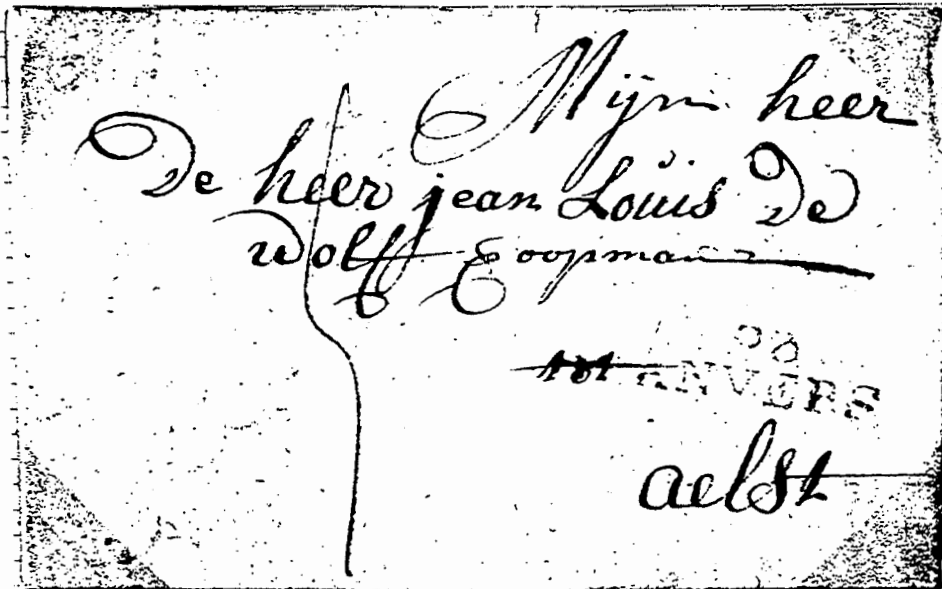 Mijn heer
De heer jean Louis De
wolff Coopman
93
tot ANVERS
aelst